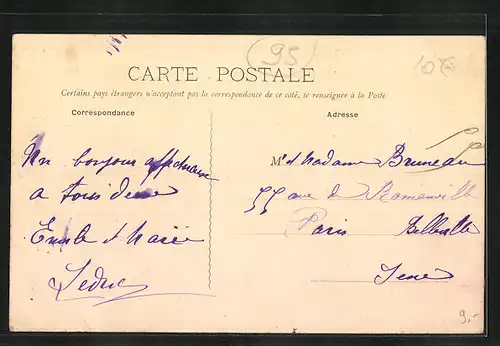 (95)
CARTE POSTALE
Certains pays étrangers n'acceptant pas la correspondance de ce côté, se renseigner à la Poste
Correspondance
Adresse
Un bonjour affectueux
a tous deux
Emile et Marie
Leduc
Mr et Madame Bruneau
55 rue de Romainville
Paris Belleville
Seine
9.-